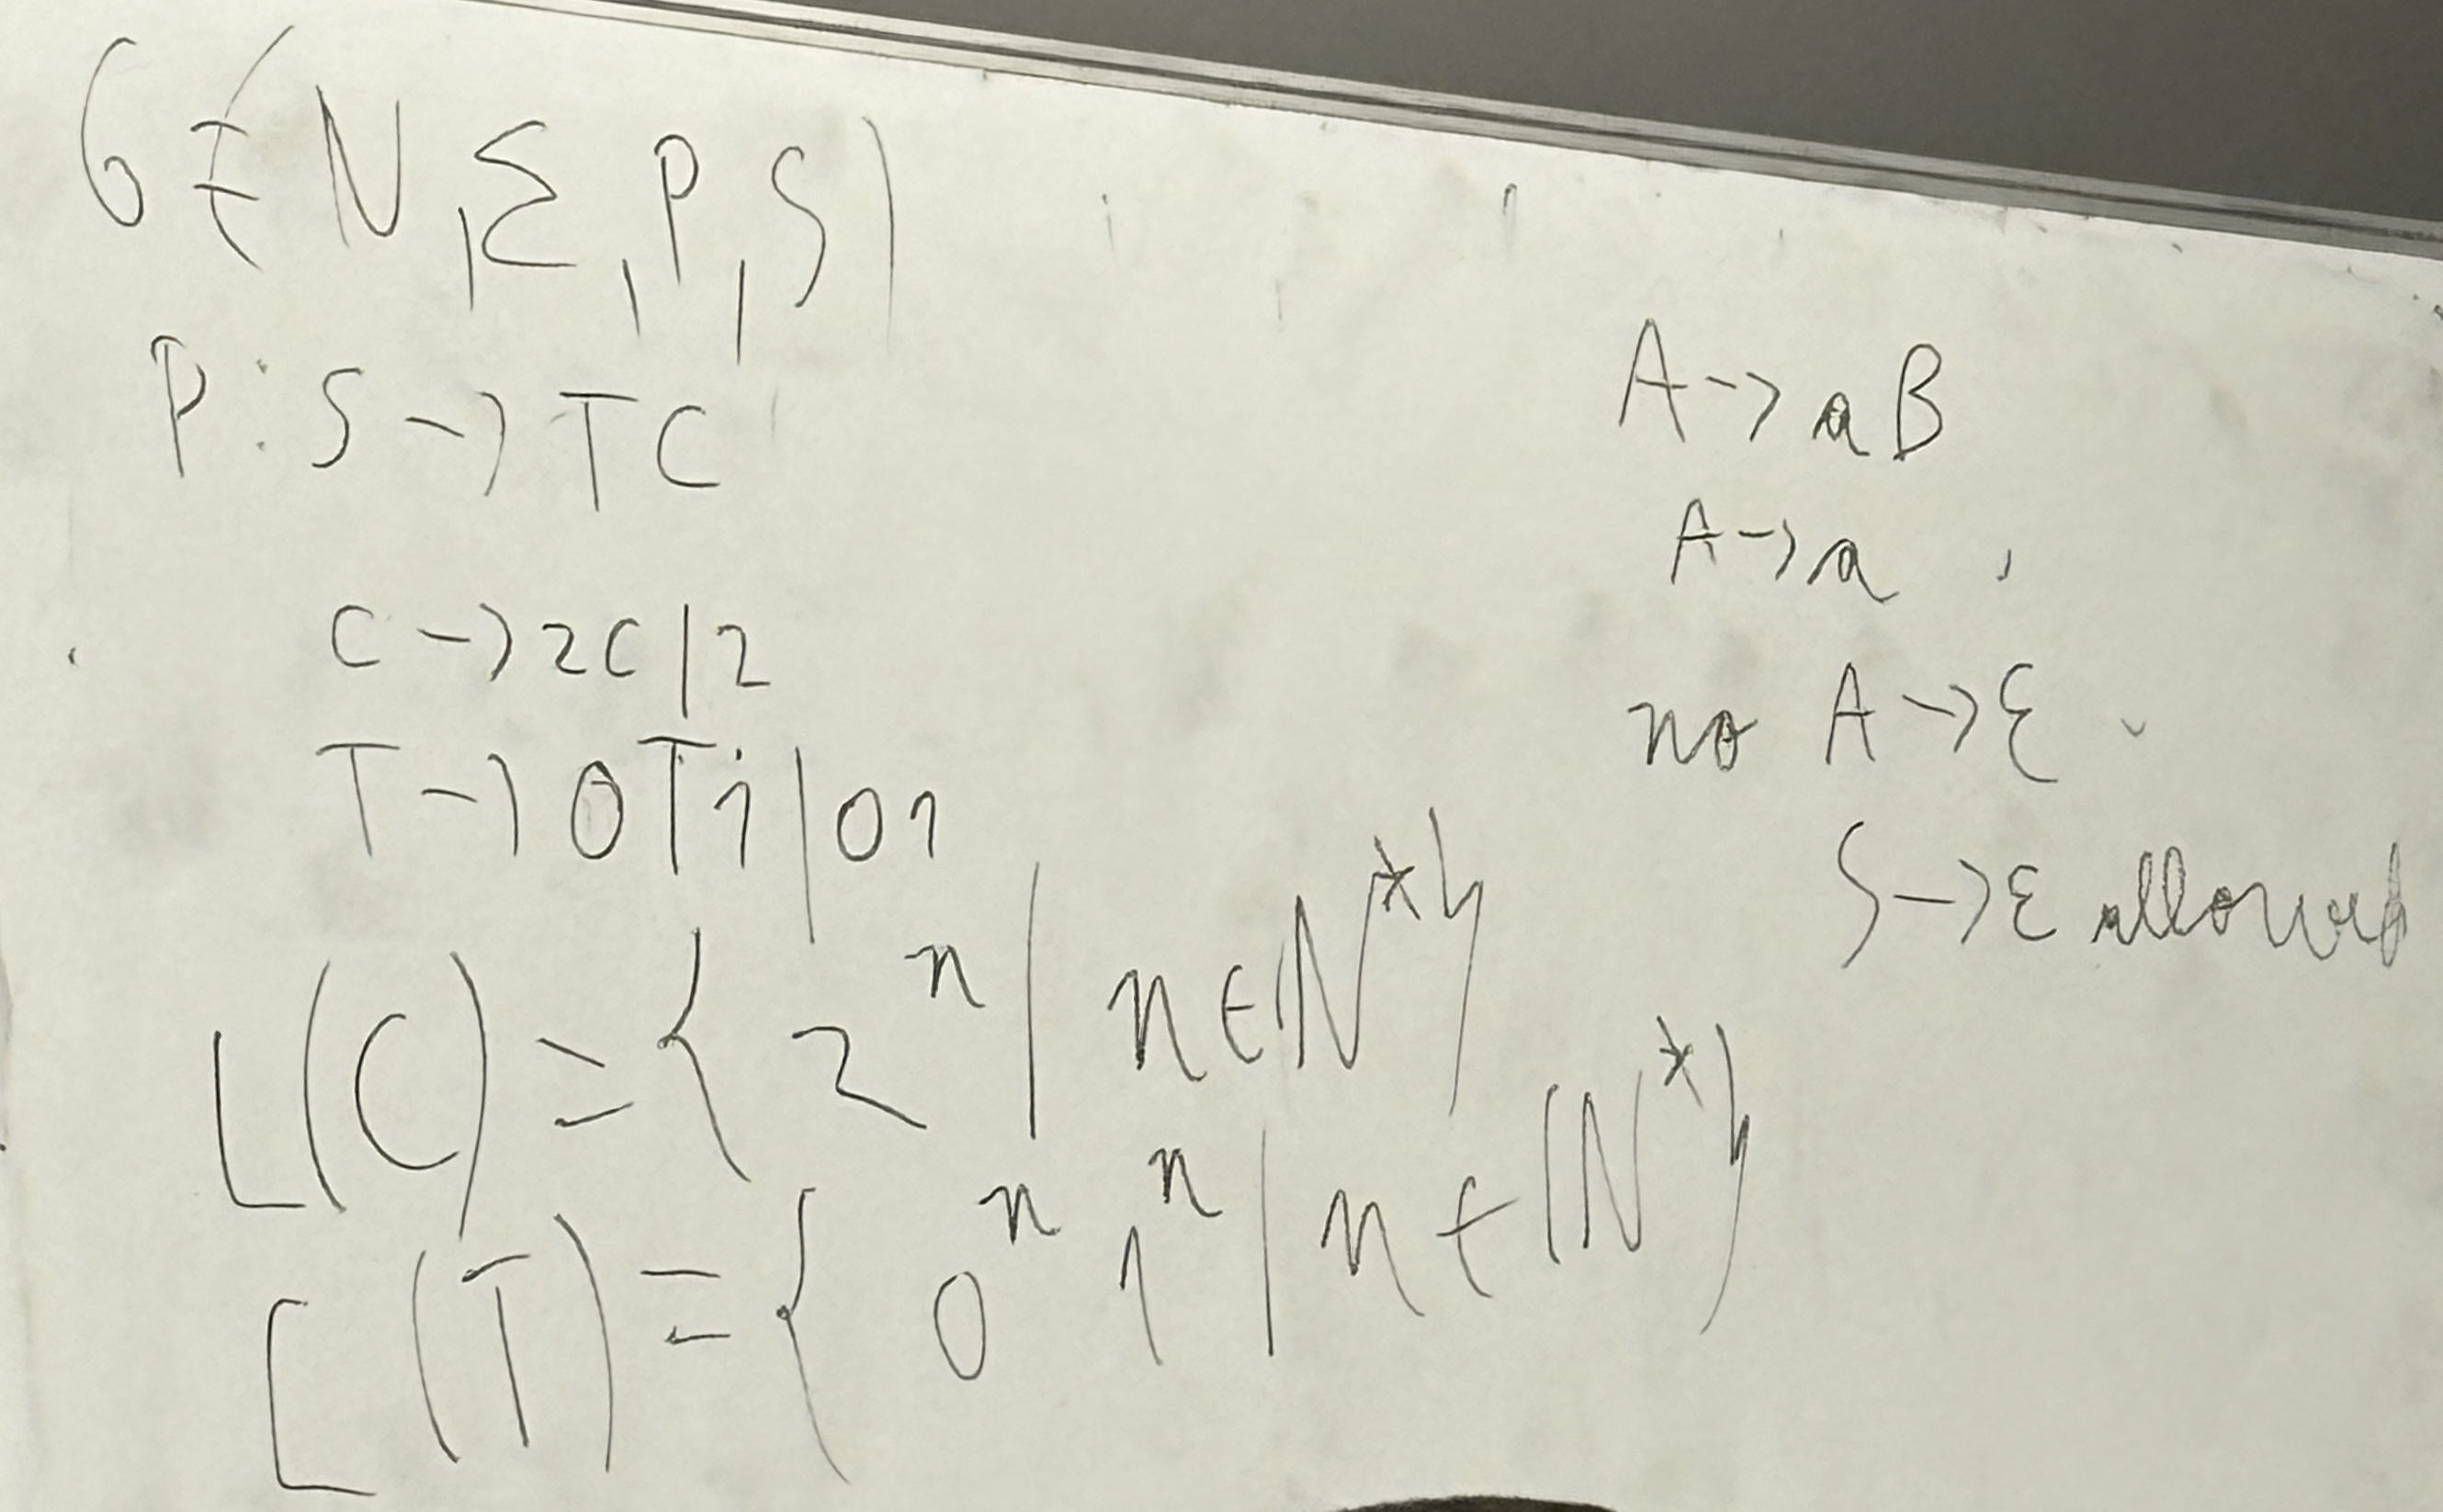 G = (N, Σ, P, S)
P: S → TC
C → 2C | 2
T → 0T1 | 01
L(C) = { 2ⁿ | n ∈ ℕ* }
L(T) = { 0ⁿ 1ⁿ | n ∈ ℕ* }
A → aB
A → a
no A → ε
S → ε allowed